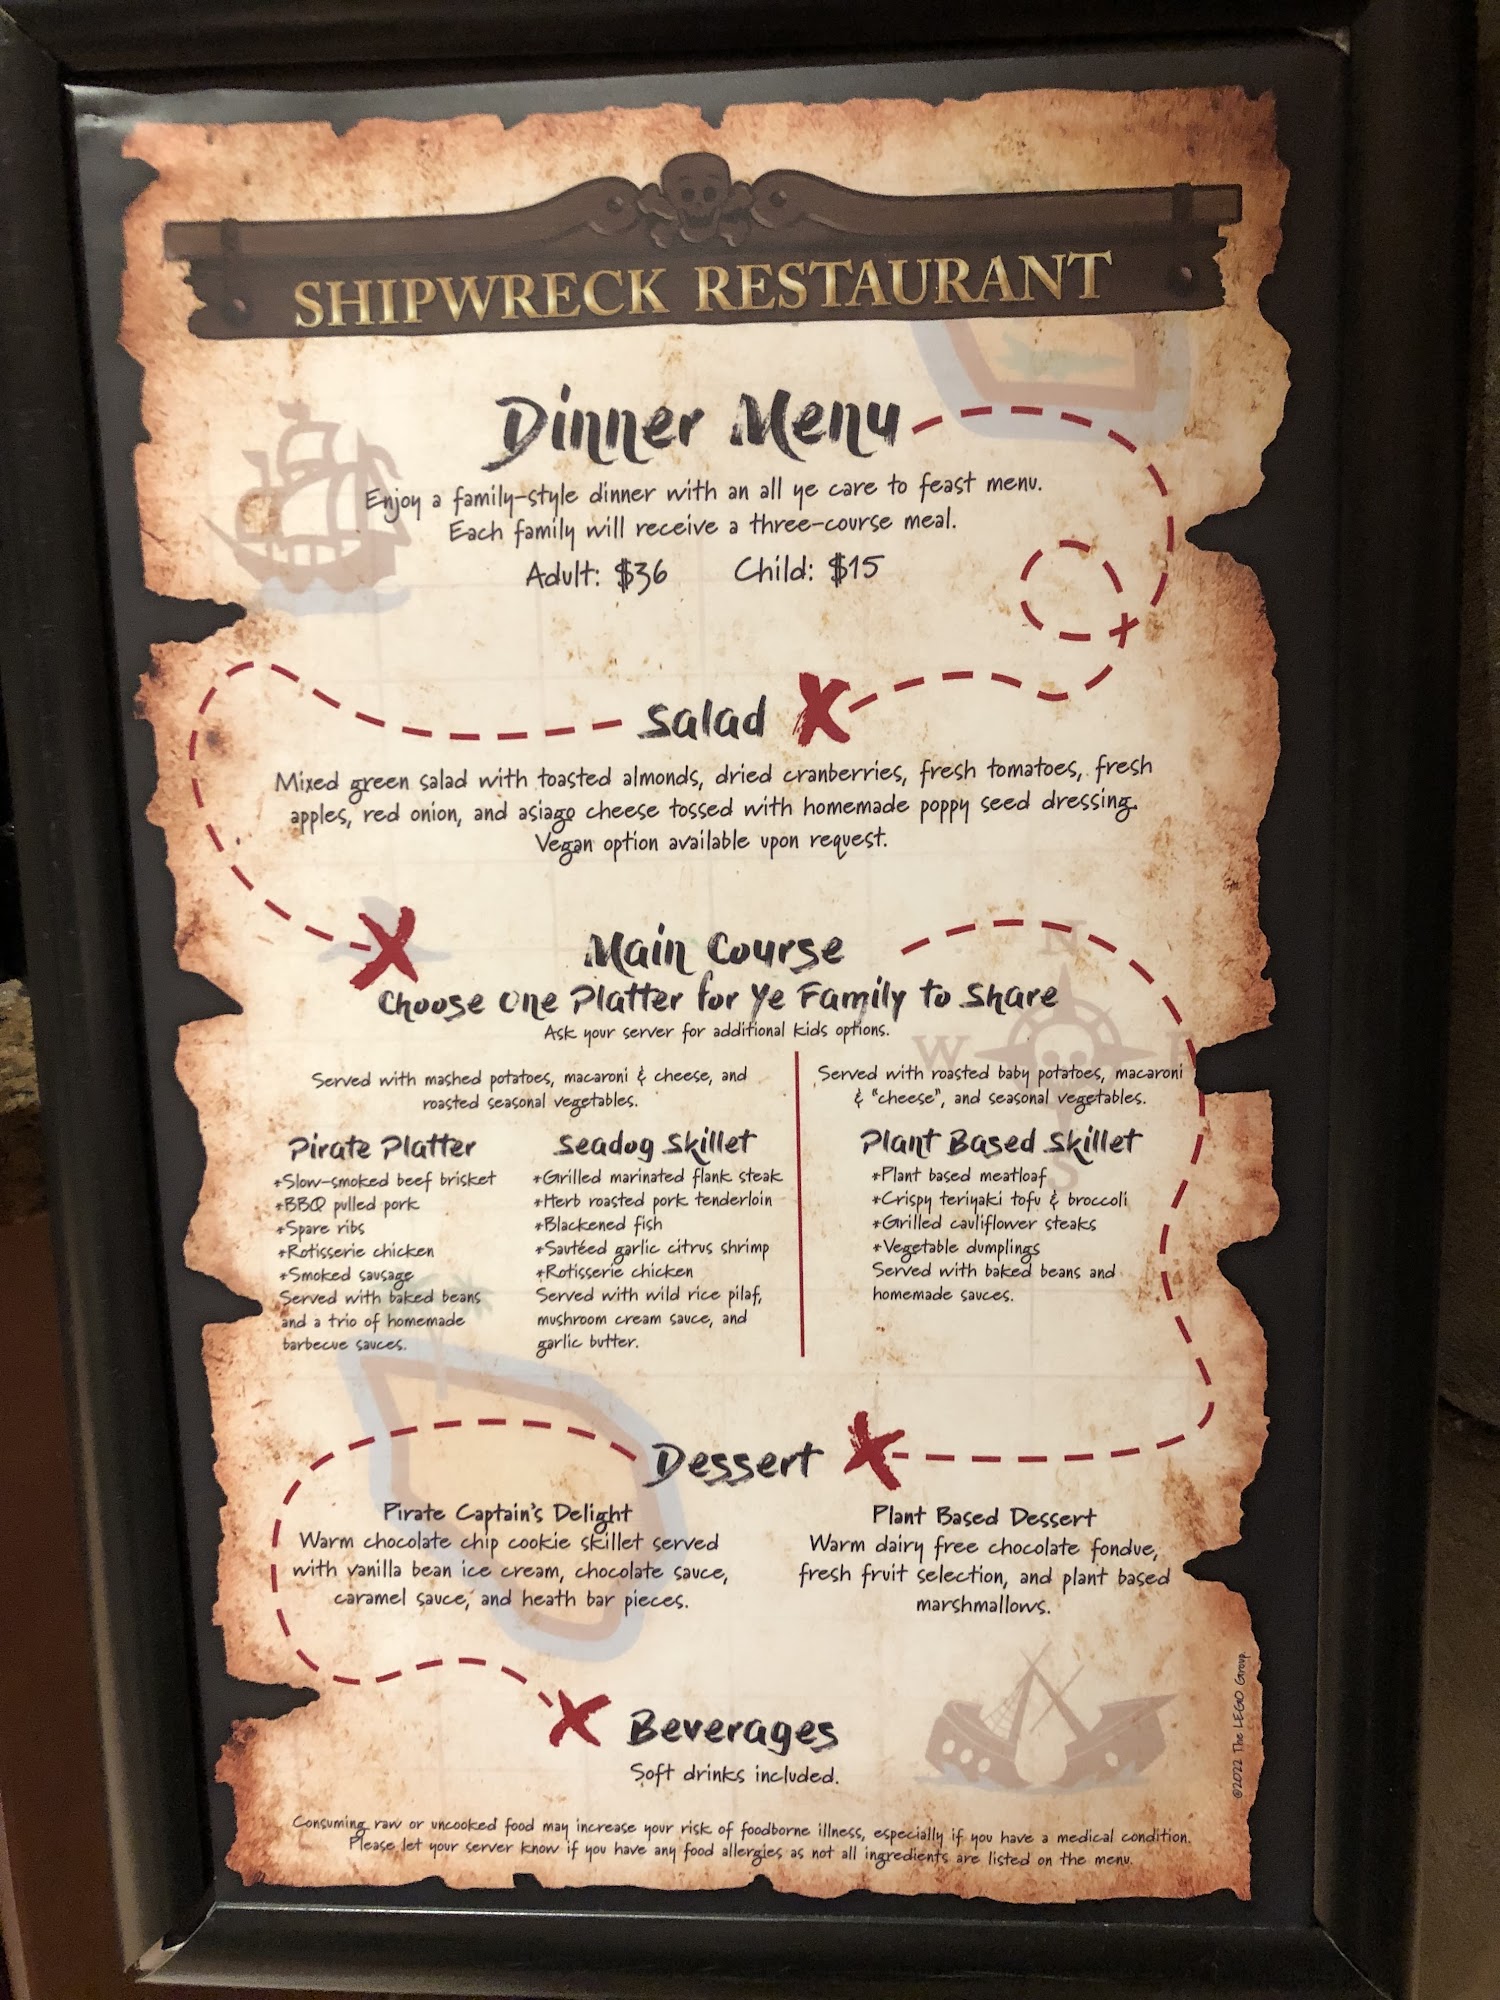 SHIPWRECK RESTAURANT
Dinner Menu
Enjoy a family-style dinner with an all ye care to feast menu.
Each family will receive a three-course meal.
Adult: $36 Child: $15
Salad
Mixed green salad with toasted almonds, dried cranberries, fresh tomatoes, fresh
apples, red onion, and asiago cheese tossed with homemade poppy seed dressing.
Vegan option available upon request.
Main Course
Choose One Platter for Ye Family to Share
Ask your server for additional kids options.
Served with mashed potatoes, macaroni & cheese, and
roasted seasonal vegetables.
Pirate Platter
+Slow-smoked beef brisket
+BBQ pulled pork
+Spare ribs
+Rotisserie chicken
+Smoked sausage
Served with baked beans
and a trio of homemade
barbecue sauces.
Seadog Skillet
+Grilled marinated flank steak
+Herb roasted pork tenderloin
+Blackened fish
+Sautéed garlic citrus shrimp
+Rotisserie chicken
Served with wild rice pilaf,
mushroom cream sauce, and
garlic butter.
N
W
E
S
Served with roasted baby potatoes, macaroni
& "cheese", and seasonal vegetables.
Plant Based Skillet
+Plant based meatloaf
+Crispy teriyaki tofu & broccoli
+Grilled cauliflower steaks
+Vegetable dumplings
Served with baked beans and
homemade sauces.
Dessert
Pirate Captain's Delight
Warm chocolate chip cookie skillet served
with vanilla bean ice cream, chocolate sauce,
caramel sauce, and heath bar pieces.
Plant Based Dessert
Warm dairy free chocolate fondue,
fresh fruit selection, and plant based
marshmallows.
Beverages
Soft drinks included.
©2022 The LEGO Group
Consuming raw or uncooked food may increase your risk of foodborne illness, especially if you have a medical condition.
Please let your server know if you have any food allergies as not all ingredients are listed on the menu.